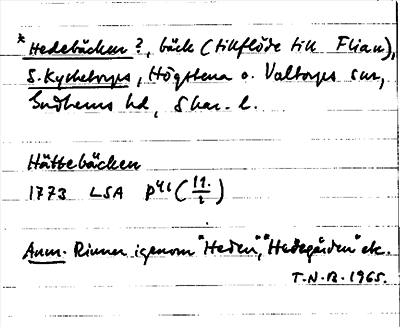 * Hedebäcken?, bäck (tillflöde till Flian),
S. Kyrketorps, Högstena o. Valtorps snr,
Gudhems hd, Skar. l.
Hättebäcken
1773 LSA P 41 (11. / 2)
Anm. Rinner igenom "Heden", "Hedegärden" etc.
T.N.B. 1965.